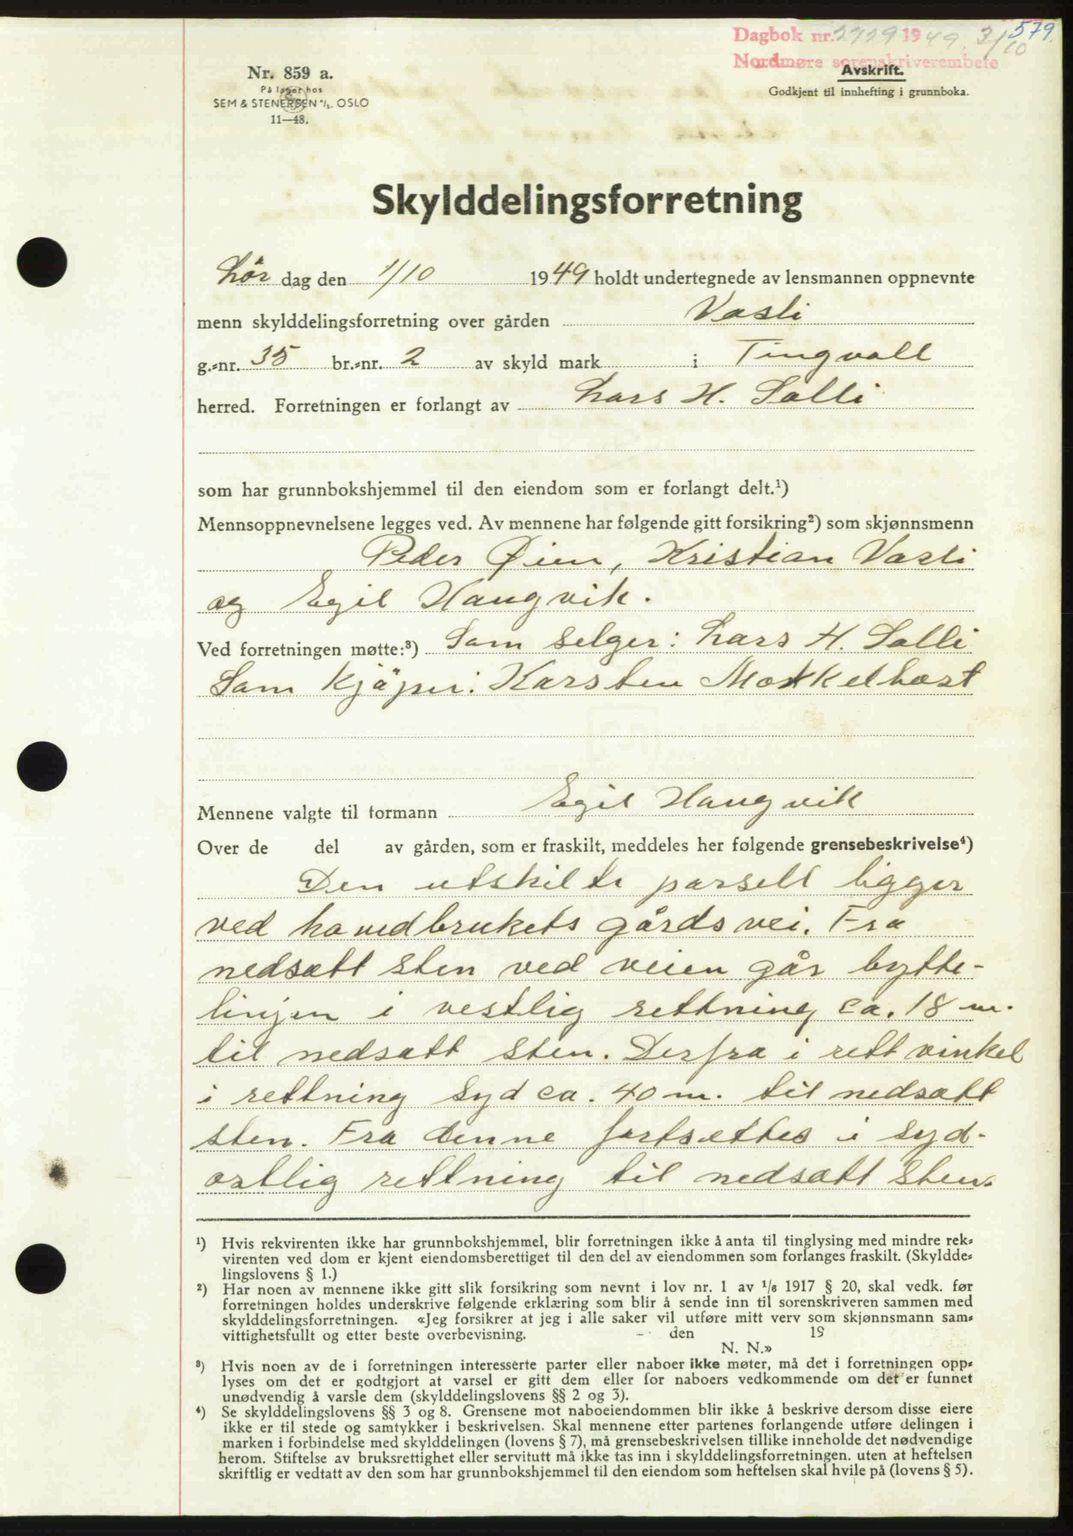 Dagbok nr. 2729 1949. 3/10
579.
Nordmøre sorenskriverembete
Nr. 859 a.
På lager hos
SEM & STENERSEN A/S. OSLO
11—48.
Avskrift.
Godkjent til innhefting i grunnboka.
Skylddelingsforretning
Lör dag den 1/10 1949 holdt undertegnede av lensmannen oppnevnte
menn skylddelingsforretning over gården Vasli
g.-nr. 35 br.-nr. 2 av skyld mark i Tingvoll
herred. Forretningen er forlangt av Lars H. Salli
som har grunnbokshjemmel til den eiendom som er forlangt delt.¹)
Mennsoppnevnelsene legges ved. Av mennene har følgende gitt forsikring²) som skjønnsmenn
Peder Øien, Kristian Vasli
og Egil Haugvik.
Ved forretningen møtte:³) Som selger: Lars H. Salli
Som kjöper: Karsten Morkelhast
Mennene valgte til formann Egil Haugvik
Over de del av gården, som er fraskilt, meddeles her følgende grensebeskrivelse⁴)
Den utskilte parsell ligger
ved hovedbrukets gårdsvei. Fra
nedsatt sten ved veien går bytte-
linjen i vestlig rettning ca. 18 m.
til nedsatt sten. Derfra i rett vinkel
i rettning syd ca. 40 m. til nedsatt
sten. Fra denne fortsettes i syd-
ostlig rettning til nedsatt sten.
¹) Hvis rekvirenten ikke har grunnbokshjemmel, blir forretningen ikke å anta til tinglysing med mindre rek-
virenten ved dom er kjent eiendomsberettiget til den del av eiendommen som forlanges fraskilt. (Skyldde-
lingslovens § 1.)
²) Har noen av mennene ikke gitt slik forsikring som nevnt i lov nr. 1 av 1/6 1917 § 20, skal vedk. før
forretningen holdes underskrive følgende erklæring som blir å sende inn til sorenskriveren sammen med
skylddelingsforretningen. «Jeg forsikrer at jeg i alle saker vil utføre mitt verv som skjønnsmann sam-
vittighetsfullt og etter beste overbevisning. den 19
N. N.»
³) Hvis noen av de i forretningen interesserte parter eller naboer ikke møter, må det i forretningen opp-
lyses om det er godtgjort at varsel er gitt dem eller for naboers vedkommende om det er funnet
unødvendig å varsle dem (skylddelingslovens §§ 2 og 3).
⁴) Se skylddelingslovens §§ 3 og 8. Grensene mot naboeiendommen blir ikke å beskrive dersom disse eiere
ikke er til stede og samtykker i beskrivelsen. Skal mennene etter partenes forlangende utføre delingen i
marken i forbindelse med skylddelingen (lovens § 7), må grensebeskrivelsen tillike inneholde det nødvendige
herom. Stiftelse av bruksrettighet eller servitutt må ikke tas inn i skylddelingsforretningen. uten at heftelsen
skriftlig er vedtatt av den som har grunnbokshjemmel til den eiendom som heftelsen skal hvile på (lovens § 5).